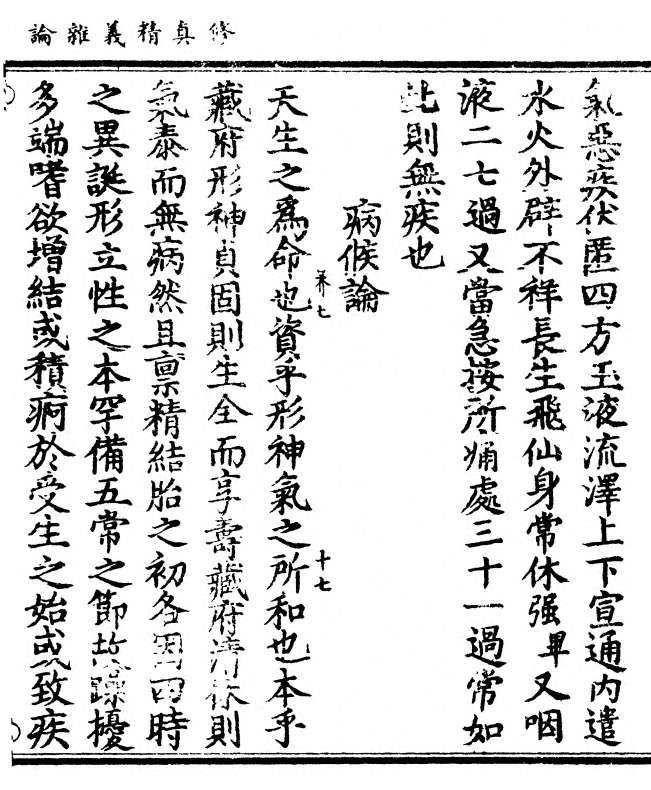 修真精義雜論
氣惡疾伏匿四方玉液流澤上下宣通內遣
水火外辟不祥長生飛仙身常休强畢又咽
液二七過又當急按所痛處三十一過常如
此則無疾也
病候論
養七
夫生之爲命也資乎形神氣之所和也本乎
十七
藏府形神貞固則生全而享壽藏府清休則
氣泰而無病然且禀精結胎之初各因四時
之異誕形立性之本罕備五常之節故躁擾
多端嗜欲增結或積痾於受生之始或致疾